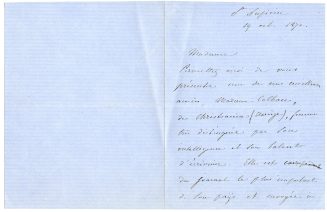 19 oct. 1870.
Madame
Permettez moi de vous
présenter une de nos excellentes
amies Madame
de Christiania (Norvège), femme
très distinguée par son
intelligence et son talent
d'écrivain. Elle est
du journal le plus important
de son pays et